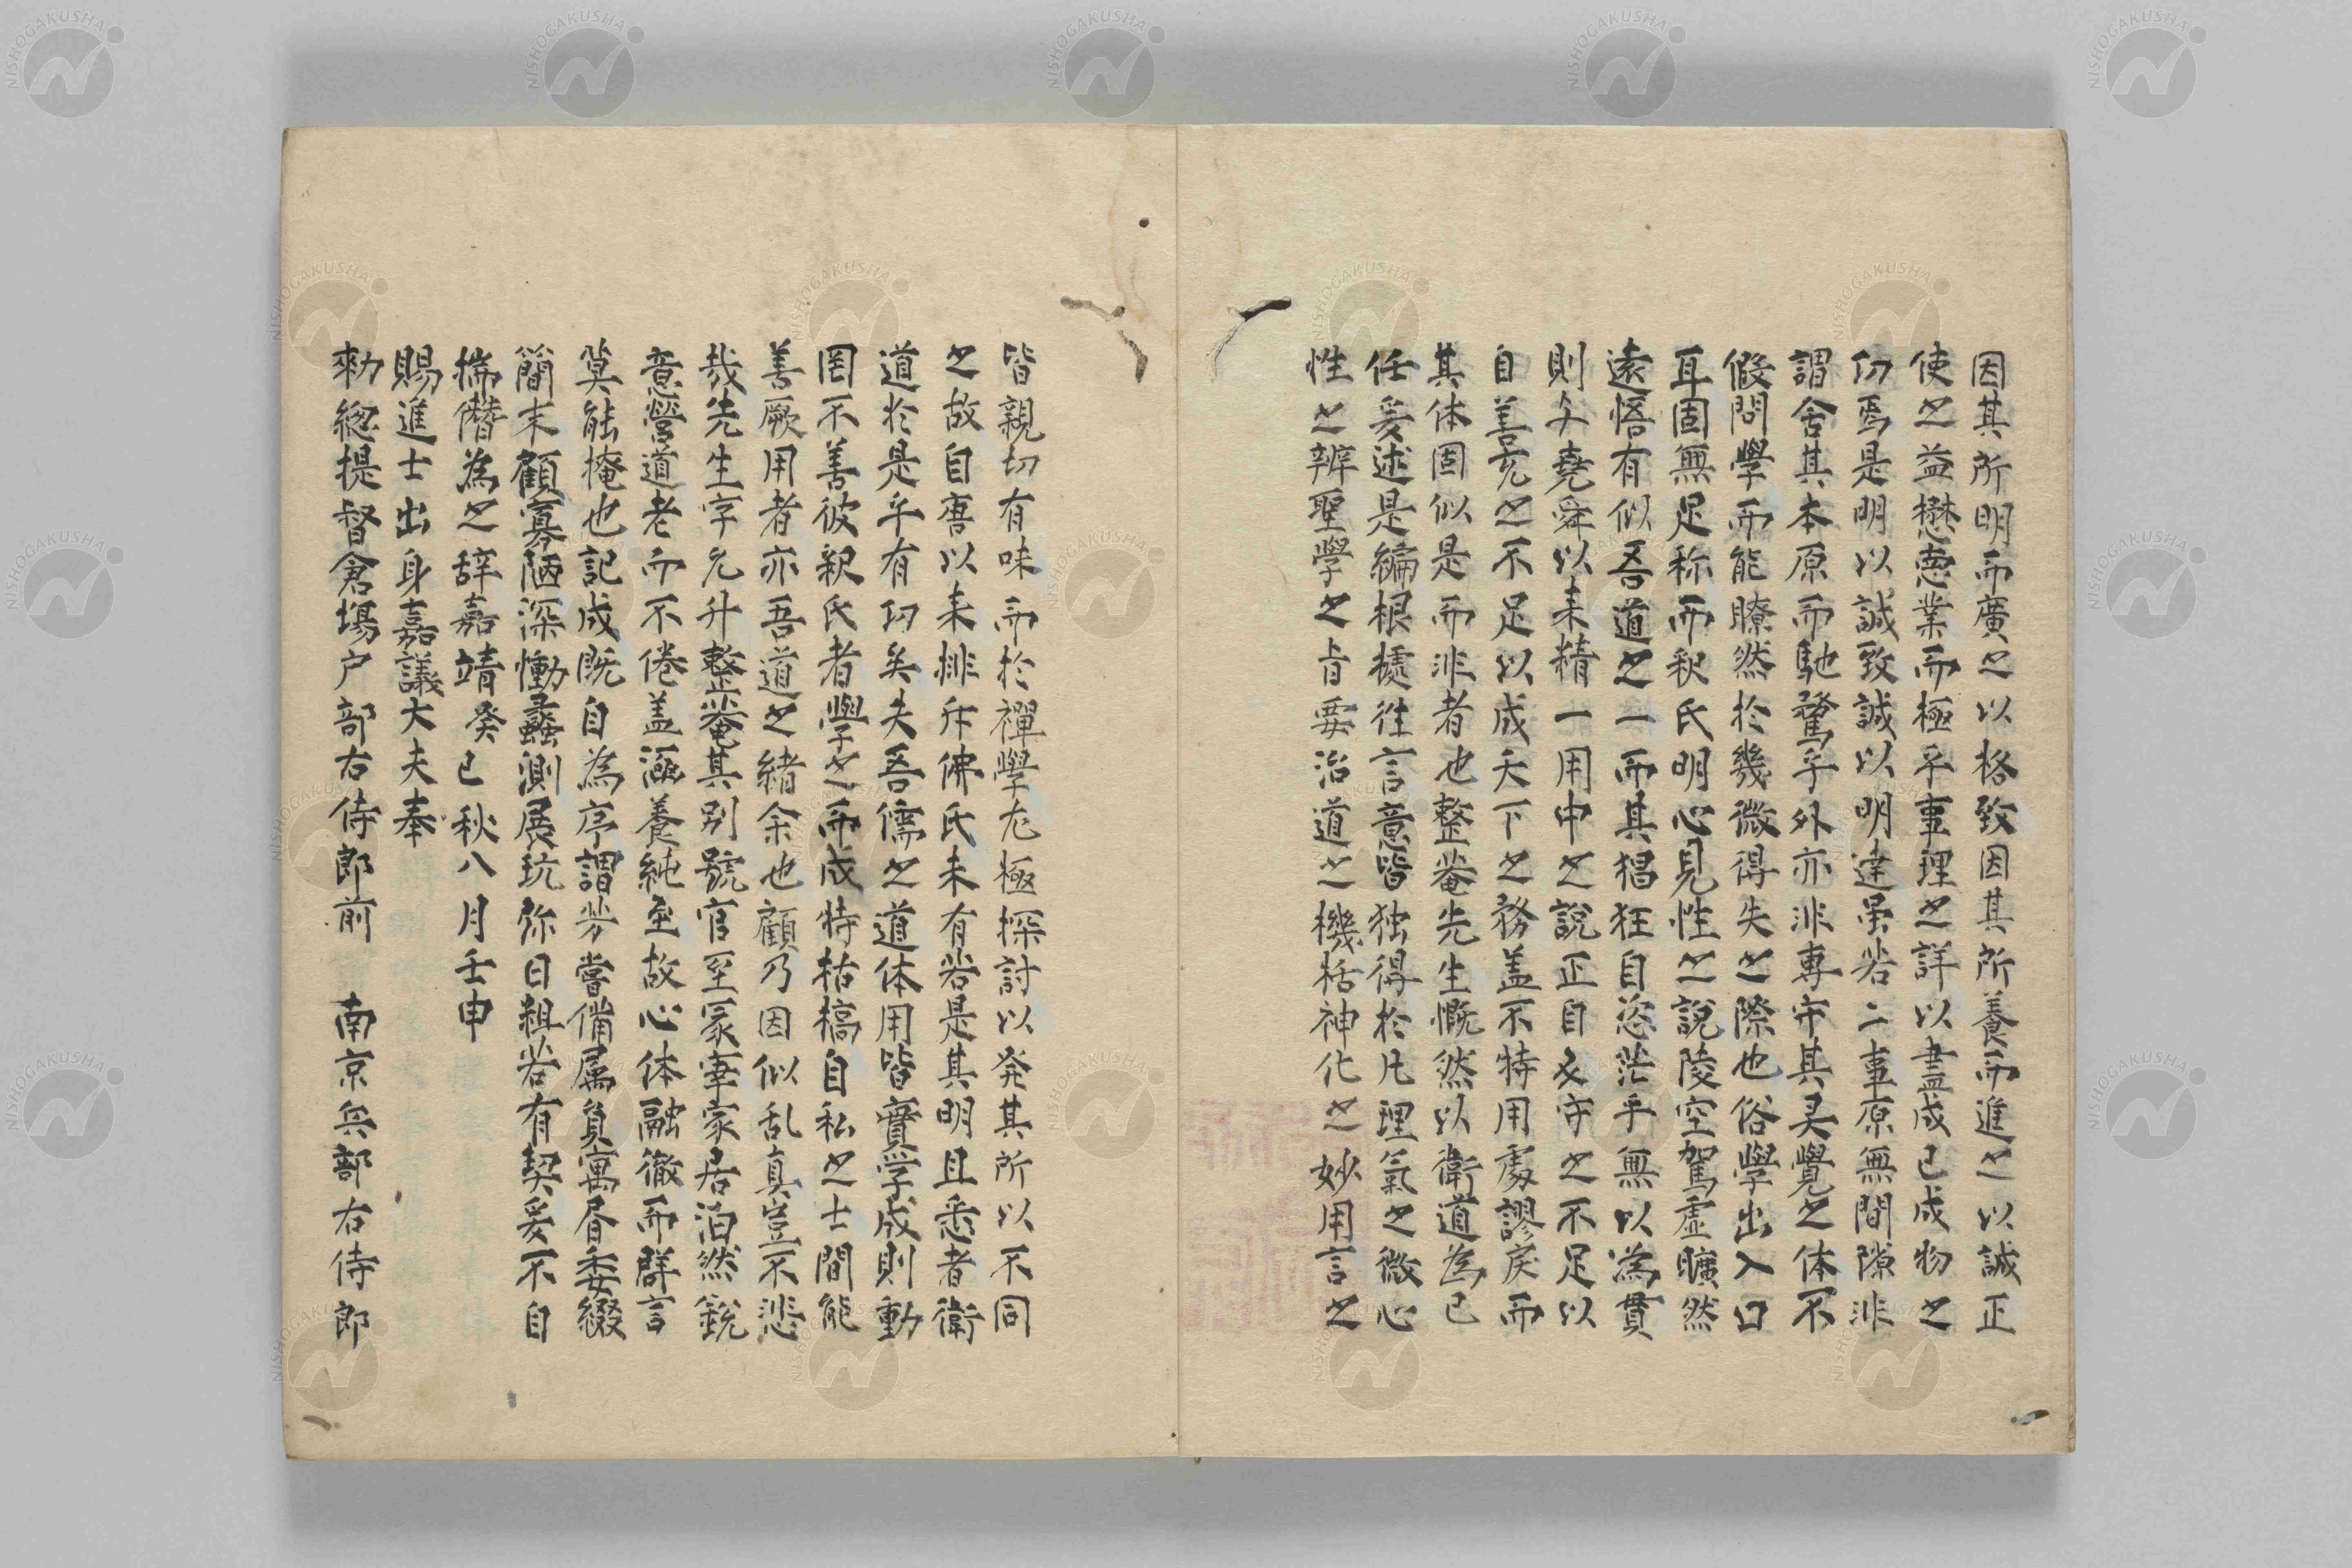 因其所明而廣之以格致因其所養而進之以誠正
使之益懋德業而極乎事理之詳以盡成己成物之
功焉是明以誠致誠以明達虽若二事原無間隙非
謂舍其本原而馳騖乎外亦非專守其灵覺之体不
假問學而能瞭然於幾微得失之際也俗學出入口
耳固無足称而釈氏明心見性之說陵空駕虛曠然
遠悟有似吾道之一而其猖狂自恣茫乎無以為貫
則今堯舜以来精一用中之說正自守之不足以
自善充之不足以成天下之務盖不特用處謬戾而
其体固似是而非者也整菴先生慨然以衛道為己
任爰述是編根據往言意皆独得於凡理氣之微心
性之辨聖學之旨要治道之機栝神化之妙用言之
皆親切有味而於禪學尤極探討以発其所以不同
之故自唐以来排斥佛氏未有若是其明且悉者衛
道於是乎有功矣夫吾儒之道体用皆實学成則動
罔不善彼釈氏者學之而成特枯槁自私之士間能
善厥用者亦吾道之緒余也顧乃因似乱真豈不悲
哉先生字允升整菴其別號官至冢宰家居泊然銳
意營道老而不倦盖涵養純至故心体融徹而群言
莫能掩也記成既自為序謂芳嘗備属負寓眉委綴
簡末顧寡陋深慚蠡測展玩弥日粗若有契爰不自
揣僭為之辞嘉靖癸巳秋八月壬申
賜進士出身嘉議大夫奉
勅総提督倉場户部右侍郎前　南京兵部右侍郎
NISHOGAKUSHA